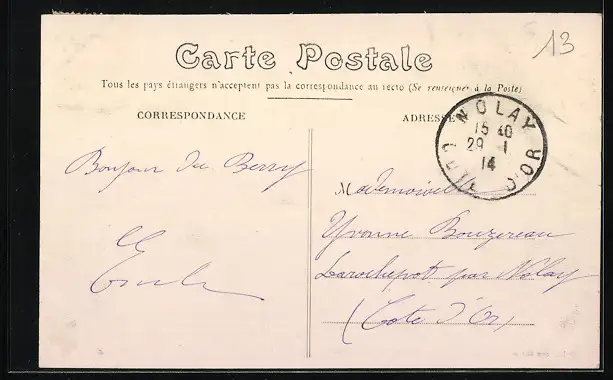 13
Carte Postale
Tous les pays étrangers n'acceptent pas la correspondance au recto (Se renseigner à la Poste)
CORRESPONDANCE
ADRESSE
NOLAY
15 40
29 - 1
14
CÔTE D'OR
Bonjour du Berry
Mademoiselle
Yvonne Bouzereau
Larochepot par Nolay
(Cote d'Or)